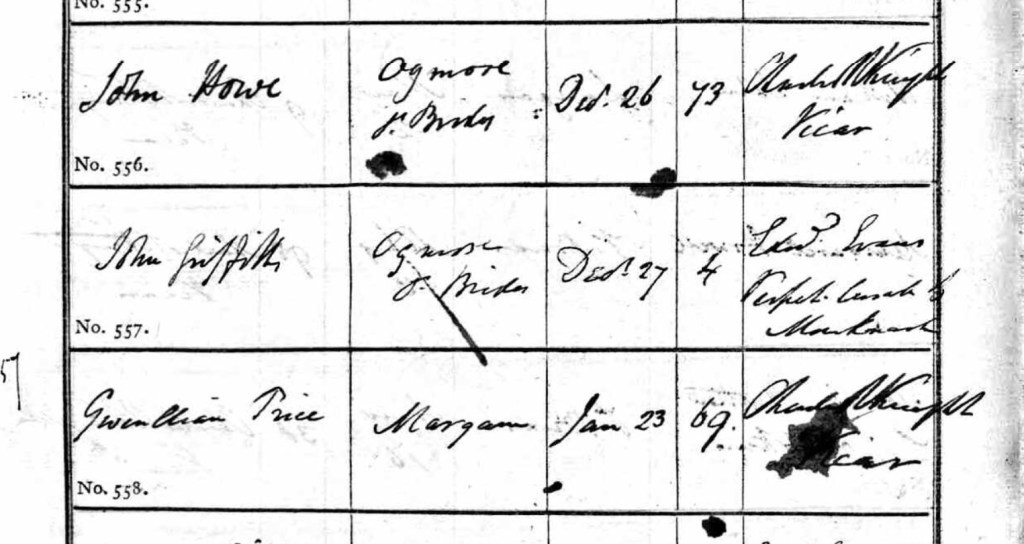 No. 555.
John Howe
Ogmore
St Brides
Decr. 26
73
Charles R Knight
Vicar
No. 556.
John Griffith
Ogmore
St Brides
Decr. 27
4
Edwd. Evans
Perpet. Curate of
No. 557.
57
Gwenllian Price
Margam
Jan 23
69.
Charles R Knight
Vicar
No. 558.